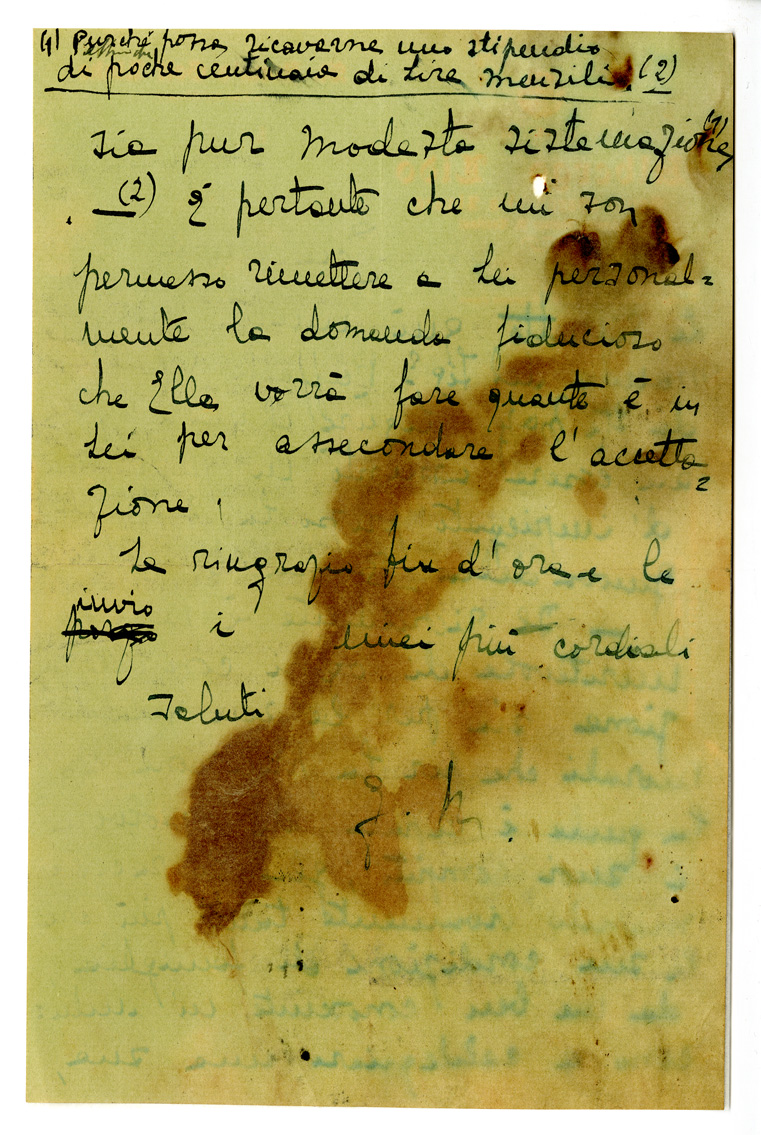 (1) Purché possa ricavarne uno stipendio
di poche centinaia di lire mensili. (2)
sia pur modesta sistemazione (1)
. (2) È pertanto che mi son
permesso rimettere a Lei personal=
mente la domanda fiducioso
che Ella vorrà fare quanto è in
Lei per assecondare l'accetta=
zione.
La ringrazio fin d'ora e le
invio
porgo i miei più cordiali
saluti